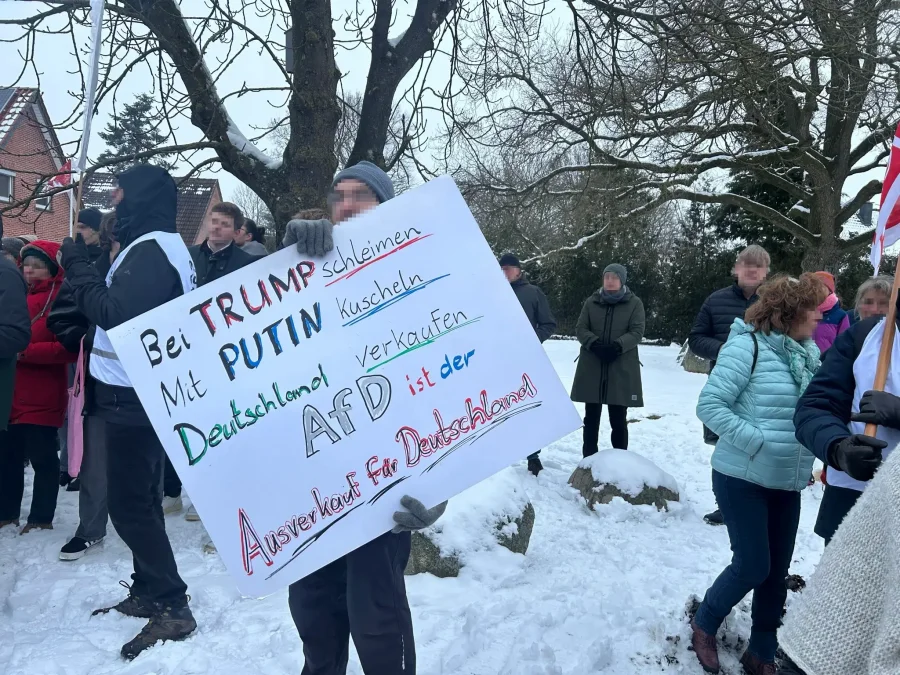 Bei TRUMP schleimen
Mit PUTIN kuscheln
Deutschland verkaufen
AfD ist der
Ausverkauf für Deutschland